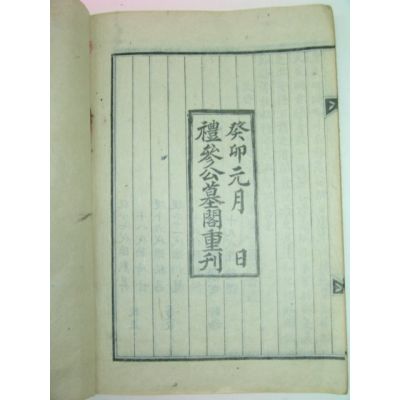 癸卯元月 日
禮參公墓閣重刊